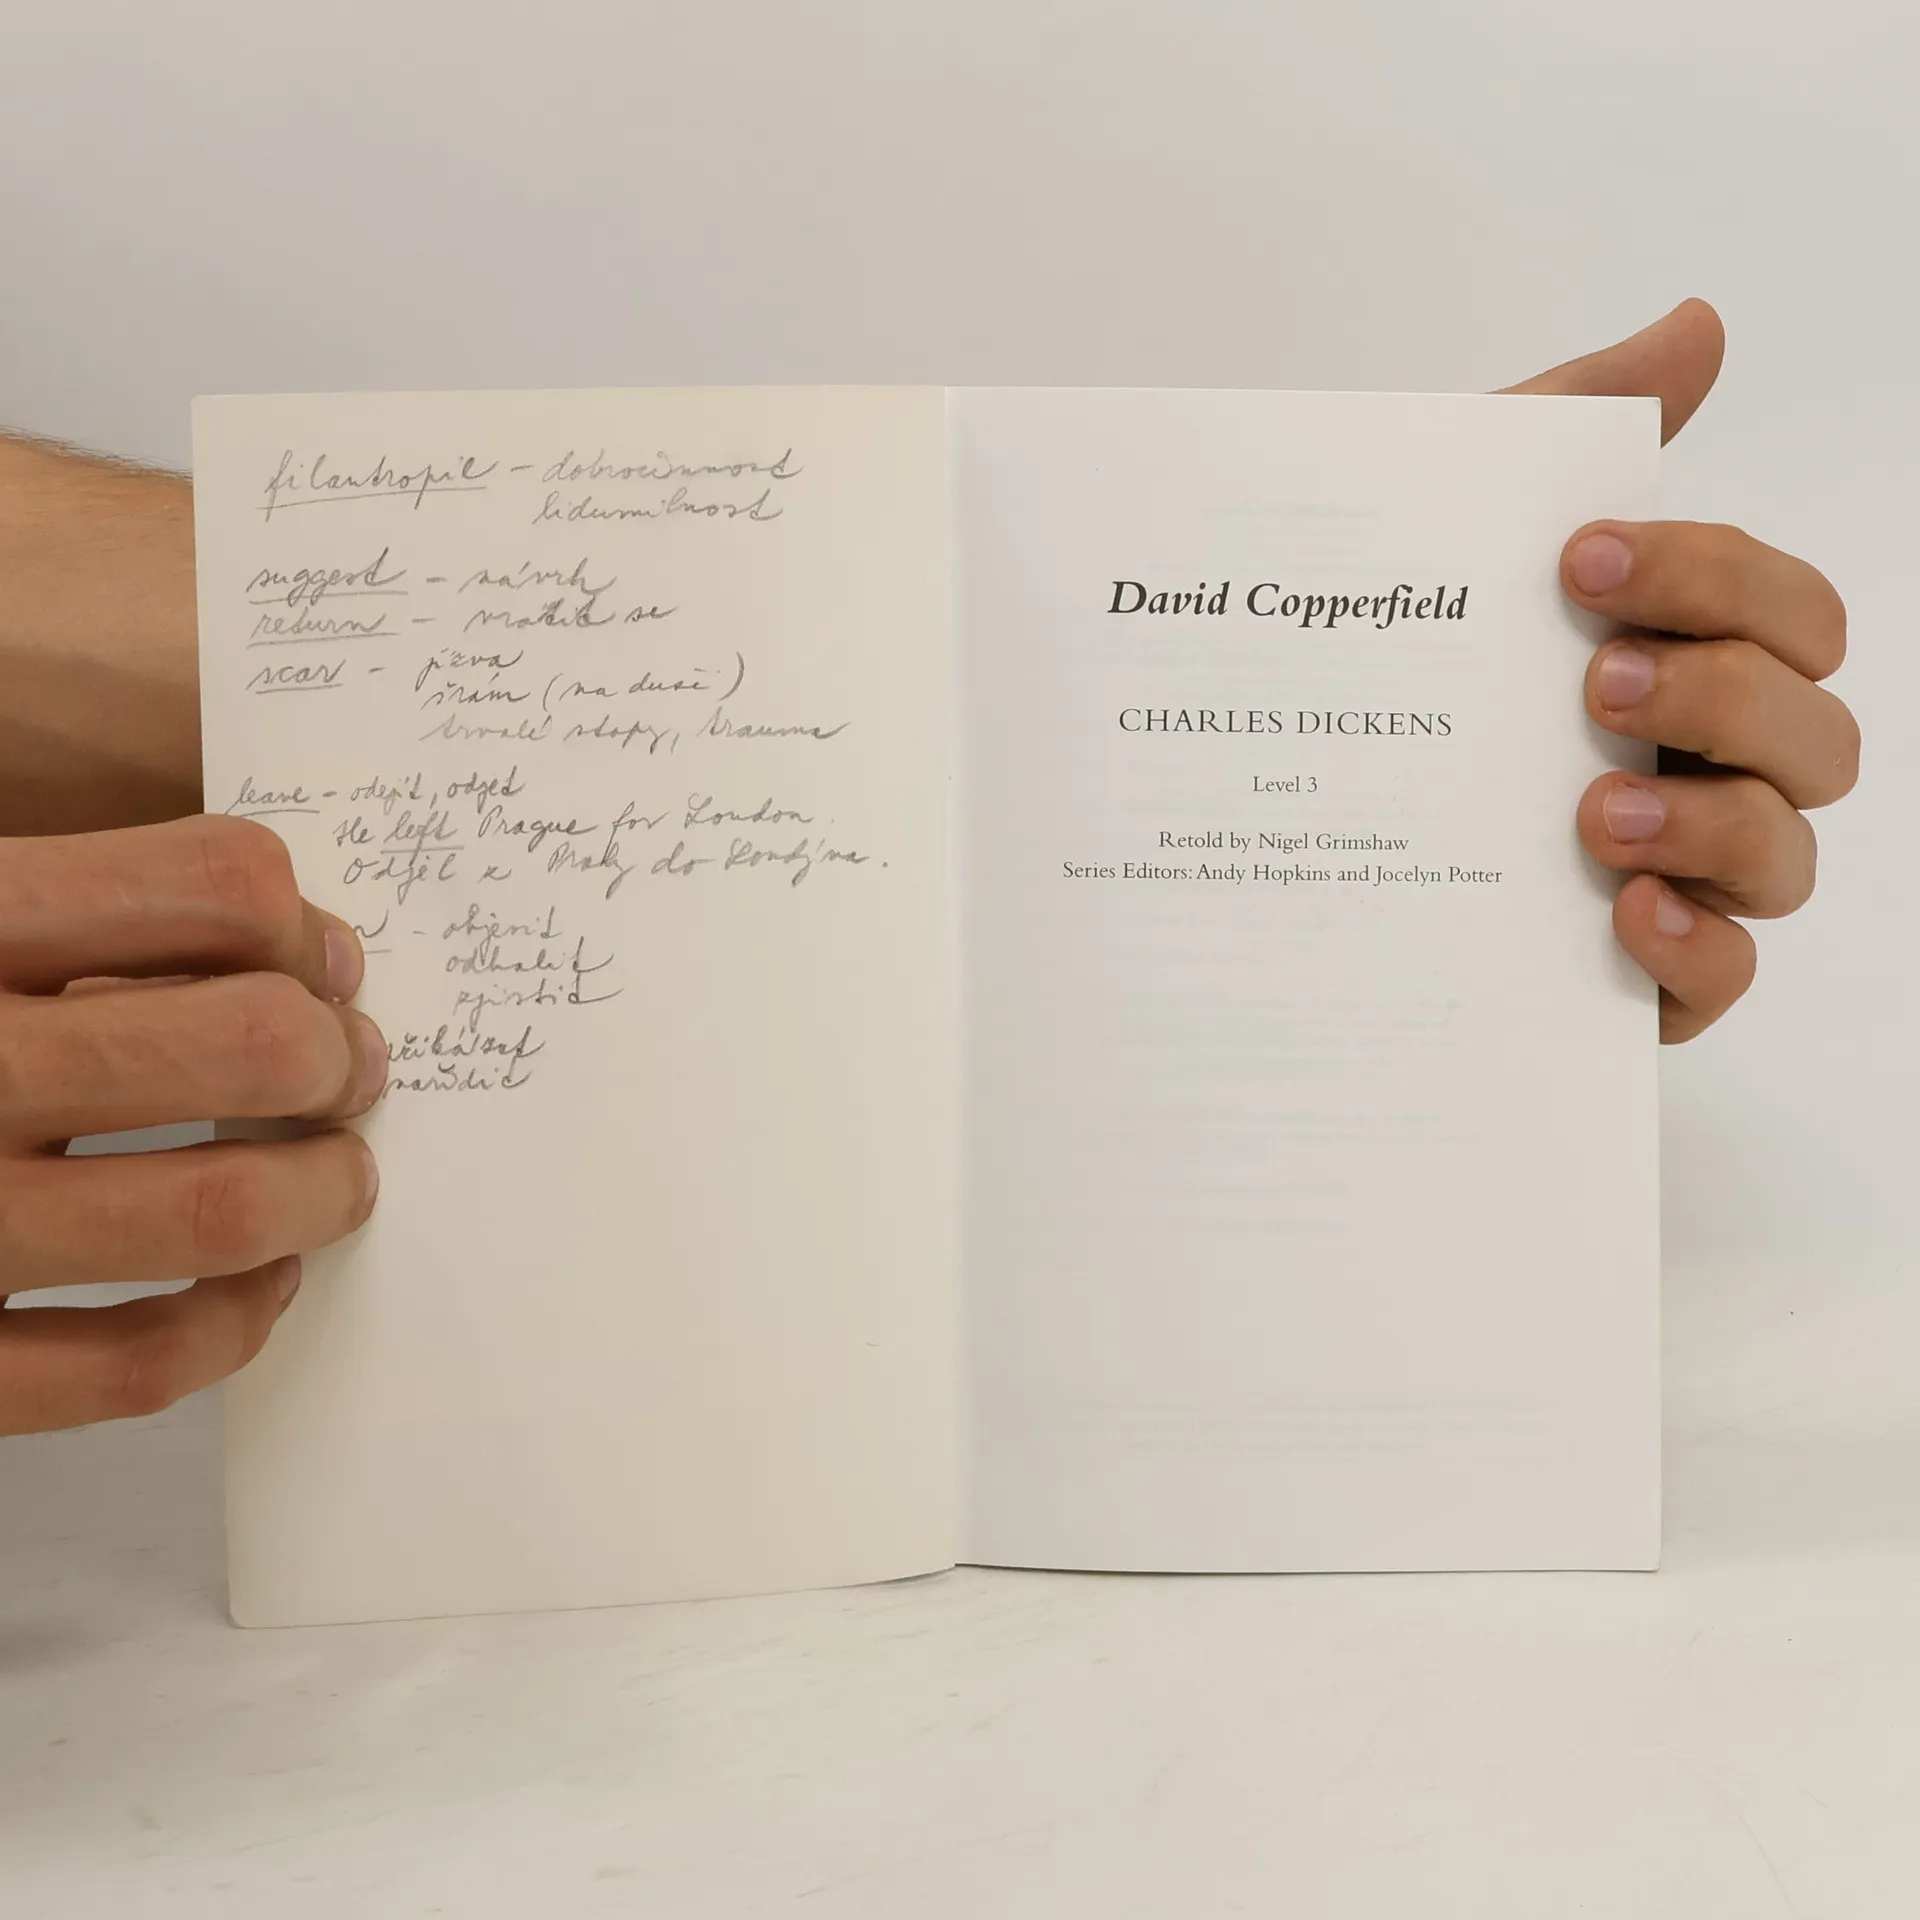 filantropie - dobročinnost
lidumilnost
suggest - návrh
return - vrátit se
scar - jizva
šrám (na duši)
trvalé stopy, trauma
leave - odejít, odjet
He left Prague for London.
Odjel z Prahy do Londýna.
- objevit
odhalit
zjistit
přikázat
nařídit
David Copperfield
CHARLES DICKENS
Level 3
Retold by Nigel Grimshaw
Series Editors: Andy Hopkins and Jocelyn Potter